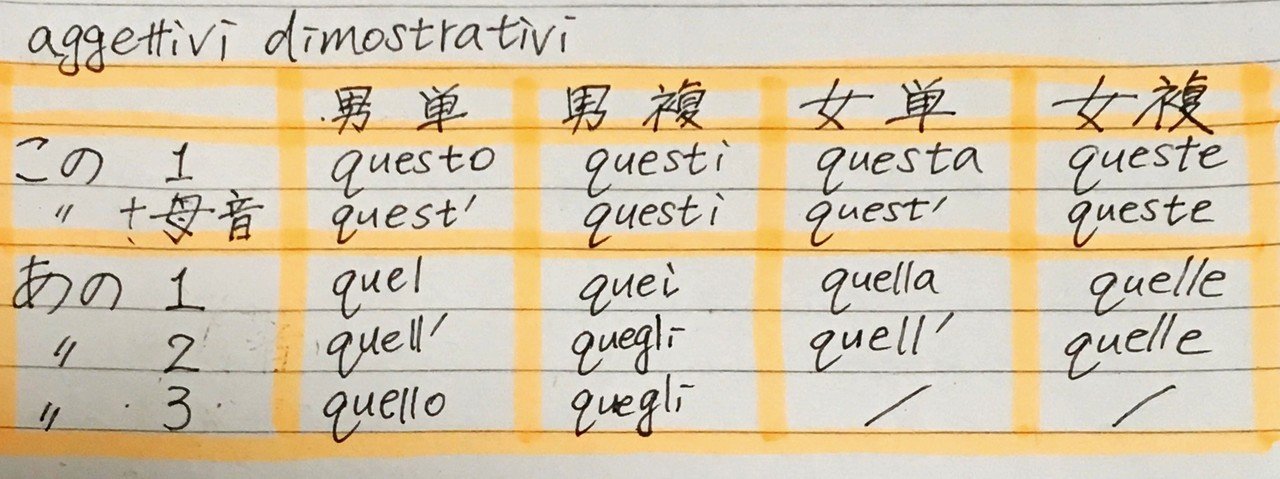 aggettivi dimostrativi
男単 男複 女単 女複
この 1 questo questi questa queste
〃 +母音 quest' questi quest' queste
あの 1 quel quei quella quelle
〃 2 quell' quegli quell' quelle
〃 3 quello quegli / /